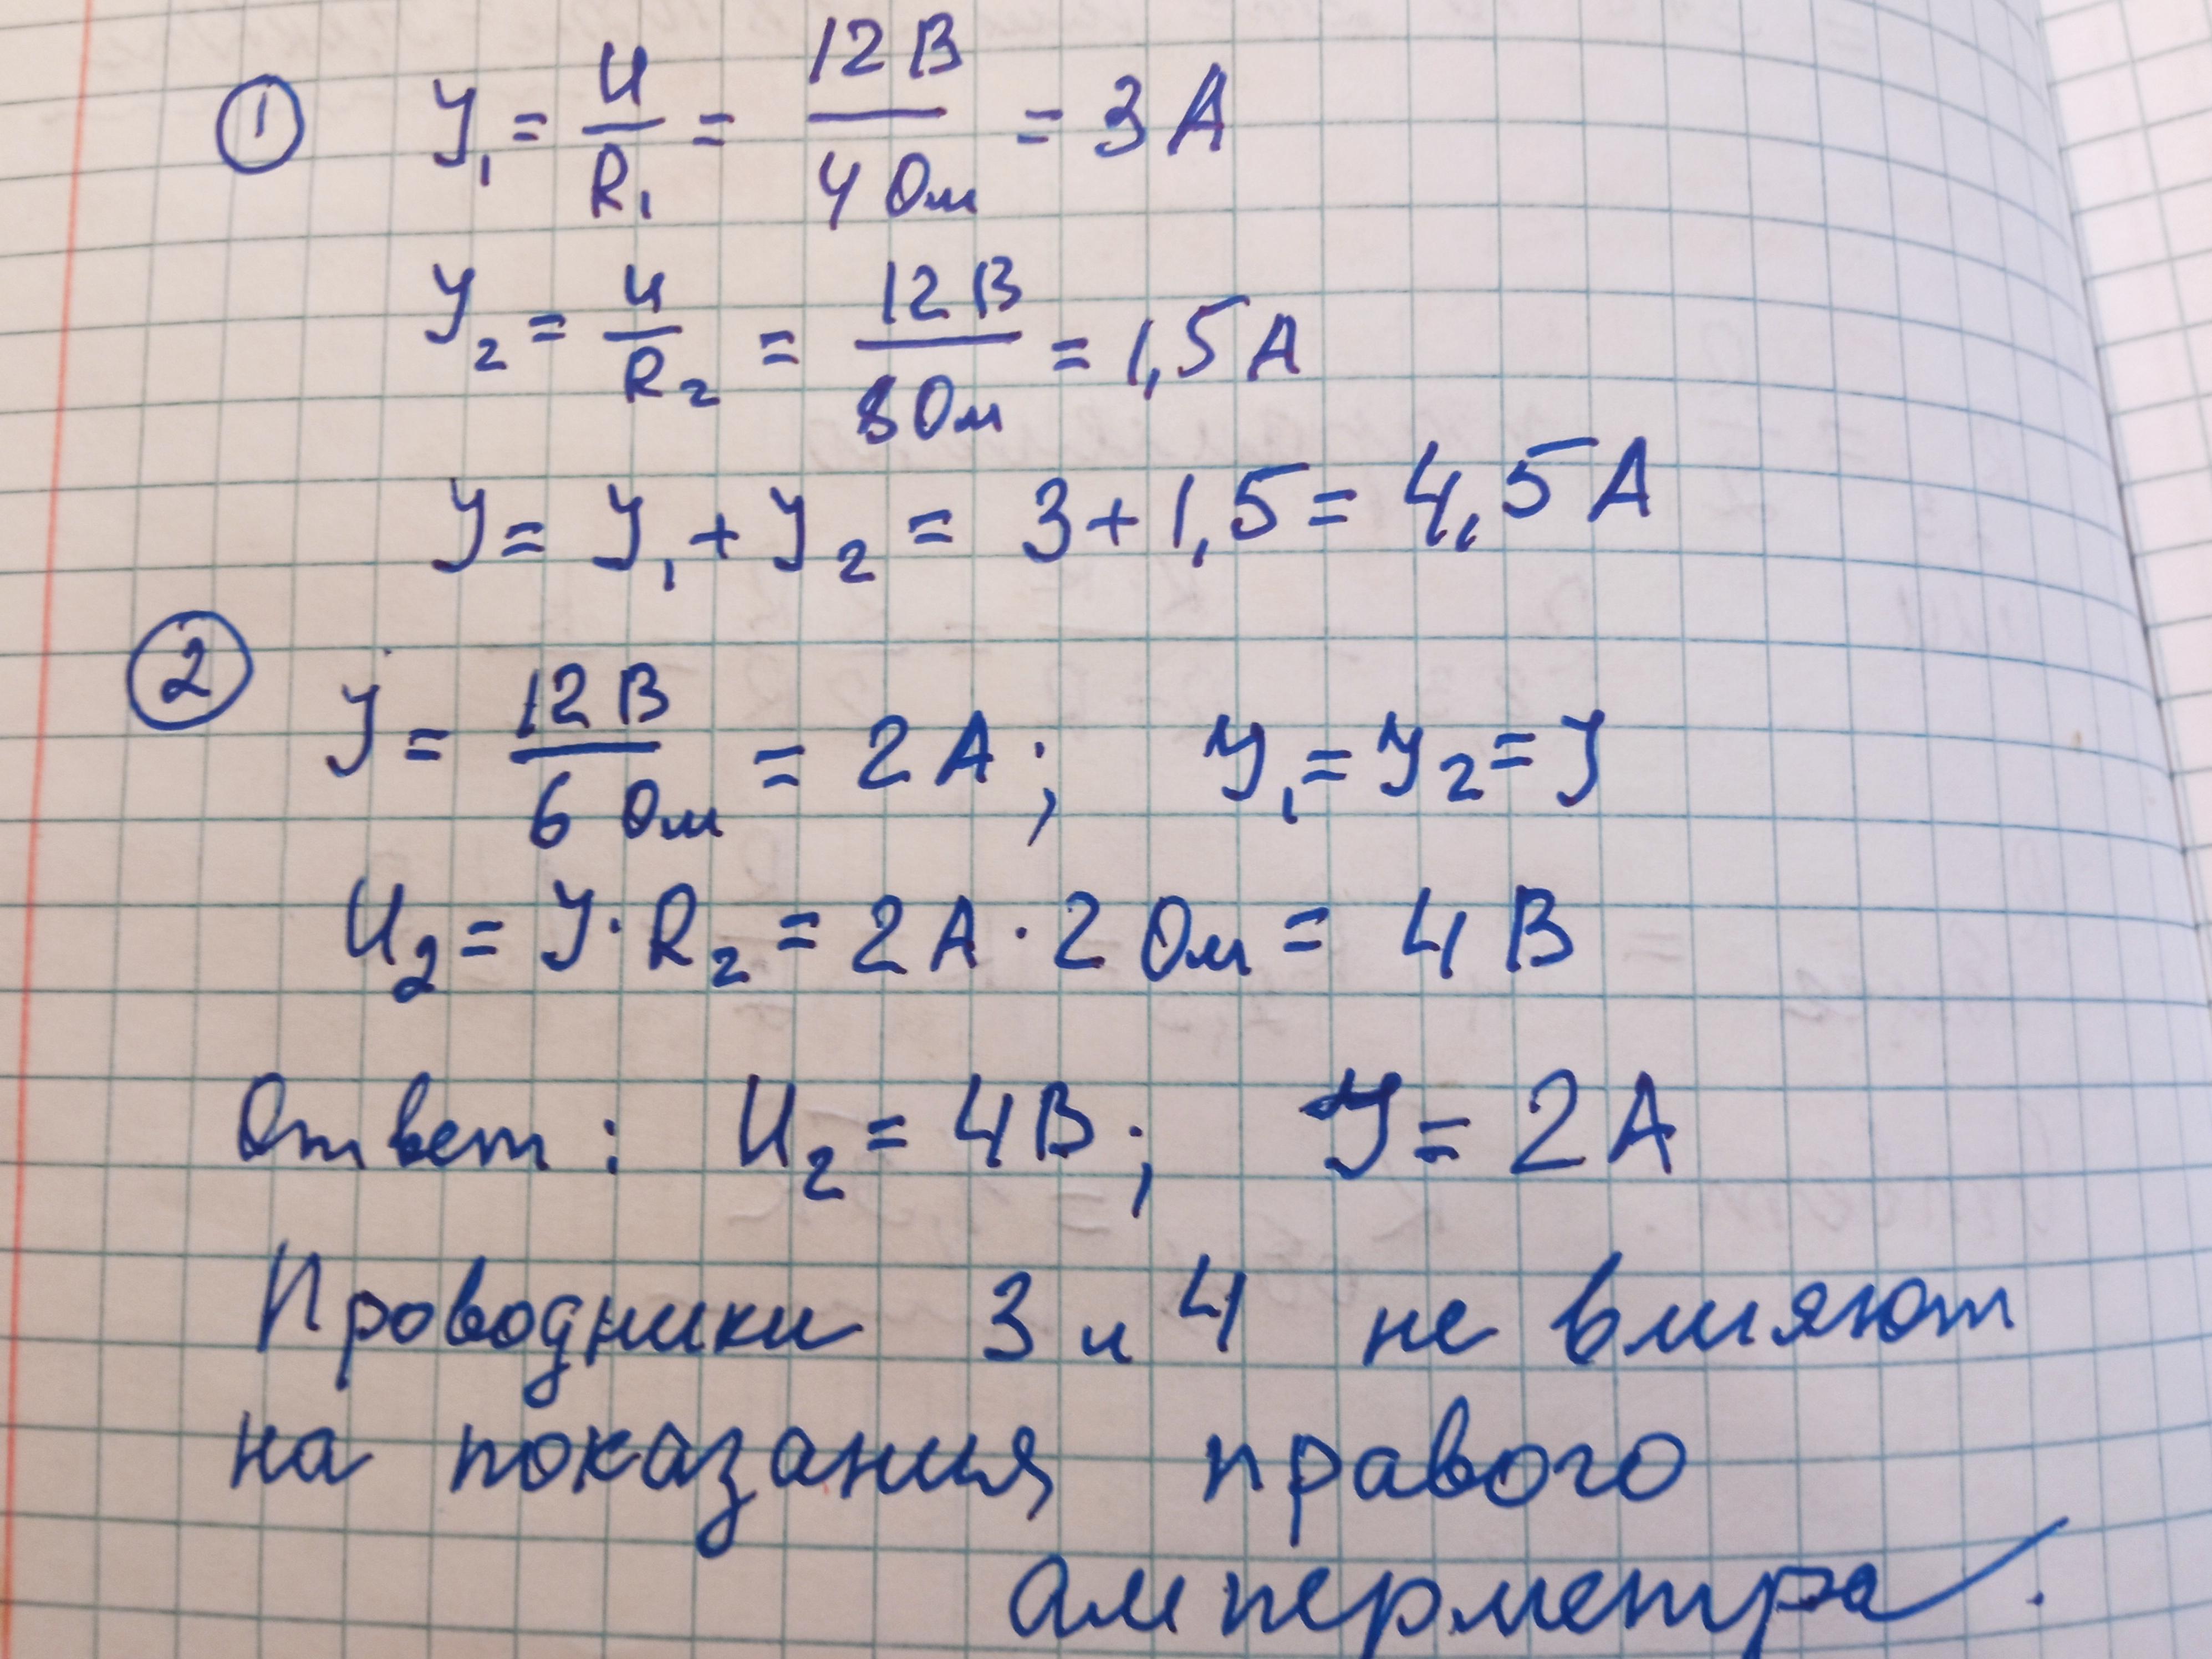 ① У₁ = U/R₁ = 12 В/4 Ом = 3 А
У₂ = U/R₂ = 12 В/8 Ом = 1,5 А
У = У₁ + У₂ = 3 + 1,5 = 4,5 А
② У = 12 В/6 Ом = 2 А; У₁ = У₂ = У
U₂ = У · R₂ = 2 А · 2 Ом = 4 В
Ответ: U₂ = 4 В; У = 2 А
Проводники 3 и 4 не влияют
на показания правого
амперметра.